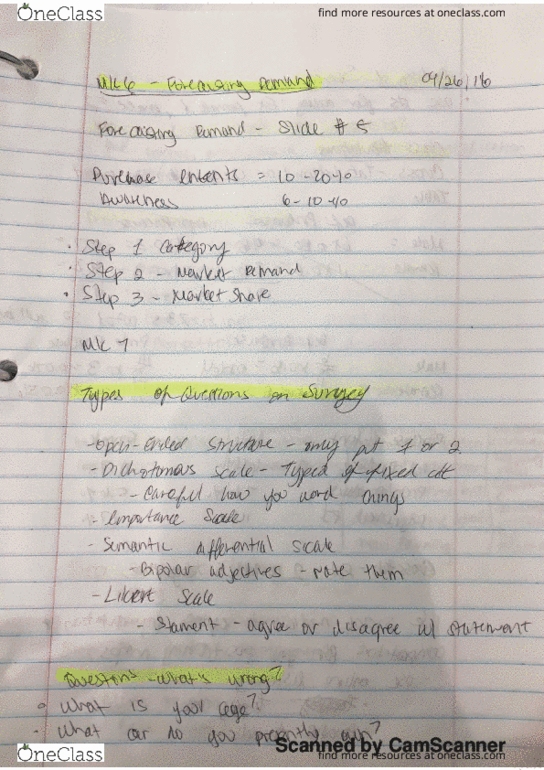 OneClass
find more resources at oneclass.com
MK 6 - Forecasting Demand 04/26/16
Forecasting Demand - Slide # 5
Purchase intents = 10-20 40
Awareness 6-10 40
· Step 1 Category
· Step 2 - Market Demand
· Step 3 - Market Share
MK 7
Types of Questions on Survey
- Open-Ended Structure - only put 1 or 2
- Dichotomous Scale - Type of fixed alt
- Careful how you word things
- Importance Scale
- Semantic differential scale
- Bipolar adjectives - rate them
- Likert Scale
- Stament - agree or disagree w/ statement
Questions - what's wrong?
· What is your age?
· What car do you presently own?
Scanned by CamScanner
OneClass
find more resources at oneclass.com